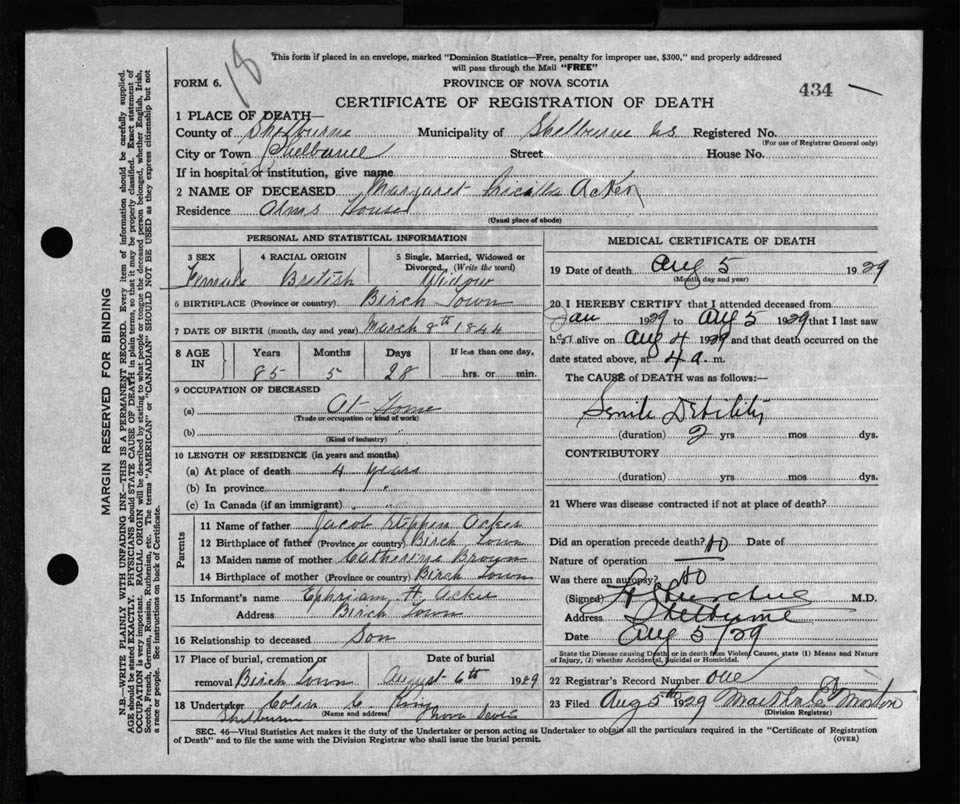 18
This form if placed in an envelope, marked "Dominion Statistics—Free, penalty for improper use, $300," and properly addressed
will pass through the Mail "FREE"
FORM 6.
PROVINCE OF NOVA SCOTIA
434
CERTIFICATE OF REGISTRATION OF DEATH
1 PLACE OF DEATH—
County of Shelburne Municipality of Shelburne NS Registered No.
(For use of Registrar General only)
City or Town Shelburne Street House No.
If in hospital or institution, give name
2 NAME OF DECEASED Margaret Acker
Residence Alms House
(Usual place of abode)
PERSONAL AND STATISTICAL INFORMATION
3 SEX 4 RACIAL ORIGIN 5 Single, Married, Widowed or
Divorced, (Write the word)
Female British Widow
6 BIRTHPLACE (Province or country) Birch Town
7 DATE OF BIRTH (month, day and year) March 8th 1844
8 AGE IN Years Months Days If less than one day,
85 5 28 hrs. or min.
9 OCCUPATION OF DECEASED
(a) At Home
(Trade or occupation or kind of work)
(b)
(Kind of industry)
10 LENGTH OF RESIDENCE (in years and months)
(a) At place of death 4 years
(b) In province " "
(c) In Canada (if an immigrant)
Parents
11 Name of father Jacob Stephen Acker
12 Birthplace of father (Province or country) Birch Town
13 Maiden name of mother Catherine Brown
14 Birthplace of mother (Province or country) Birch Town
15 Informant's name Ephriam H. Acker
Address Birch Town
16 Relationship to deceased Son
17 Place of burial, cremation or Date of burial
removal Birch Town August 6th 1929
18 Undertaker Colin C. King
(Name and address)
Shelburne Nova Scotia
MEDICAL CERTIFICATE OF DEATH
19 Date of death Aug 5 1929
(Month, day and year)
20 I HEREBY CERTIFY that I attended deceased from
Jan 1929 to Aug 5 1929 that I last saw
her alive on Aug 4 1929 and that death occurred on the
date stated above, at 4 a. m.
The CAUSE of DEATH was as follows:—
Senile Debility
(duration) 2 yrs mos dys.
CONTRIBUTORY
(duration) yrs mos dys.
21 Where was disease contracted if not at place of death?
Did an operation precede death? No Date of
Nature of operation —
Was there an autopsy? No
(Signed) M.D.
Address Shelburne
Date Aug 5/29
State the Disease causing Death, or in death from Violent Causes, state (1) Means and Nature
of Injury, (2) whether Accidental, Suicidal or Homicidal.
22 Registrar's Record Number one
23 Filed Aug 5th 1929 Martha E. Morton
(Division Registrar)
SEC. 46—Vital Statistics Act makes it the duty of the Undertaker or person acting as Undertaker to obtain all the particulars required in the "Certificate of Registration
of Death" and to file the same with the Division Registrar who shall issue the burial permit.
(OVER)
MARGIN RESERVED FOR BINDING
N.B.—WRITE PLAINLY WITH UNFADING INK—THIS IS A PERMANENT RECORD. Every item of information should be carefully supplied.
AGE should be stated EXACTLY. PHYSICIANS should STATE CAUSE OF DEATH in plain terms, so that it may be properly classified. Exact statement of
OCCUPATION is very important. RACIAL ORIGIN will be described by stating to what people or tongue the deceased person belonged, whether English, Irish,
Scotch, French, German, Russian, Ruthenian, etc. The terms "AMERICAN" or "CANADIAN" SHOULD NOT BE USED as they express citizenship but not
a race or people. See instructions on back of Certificate.